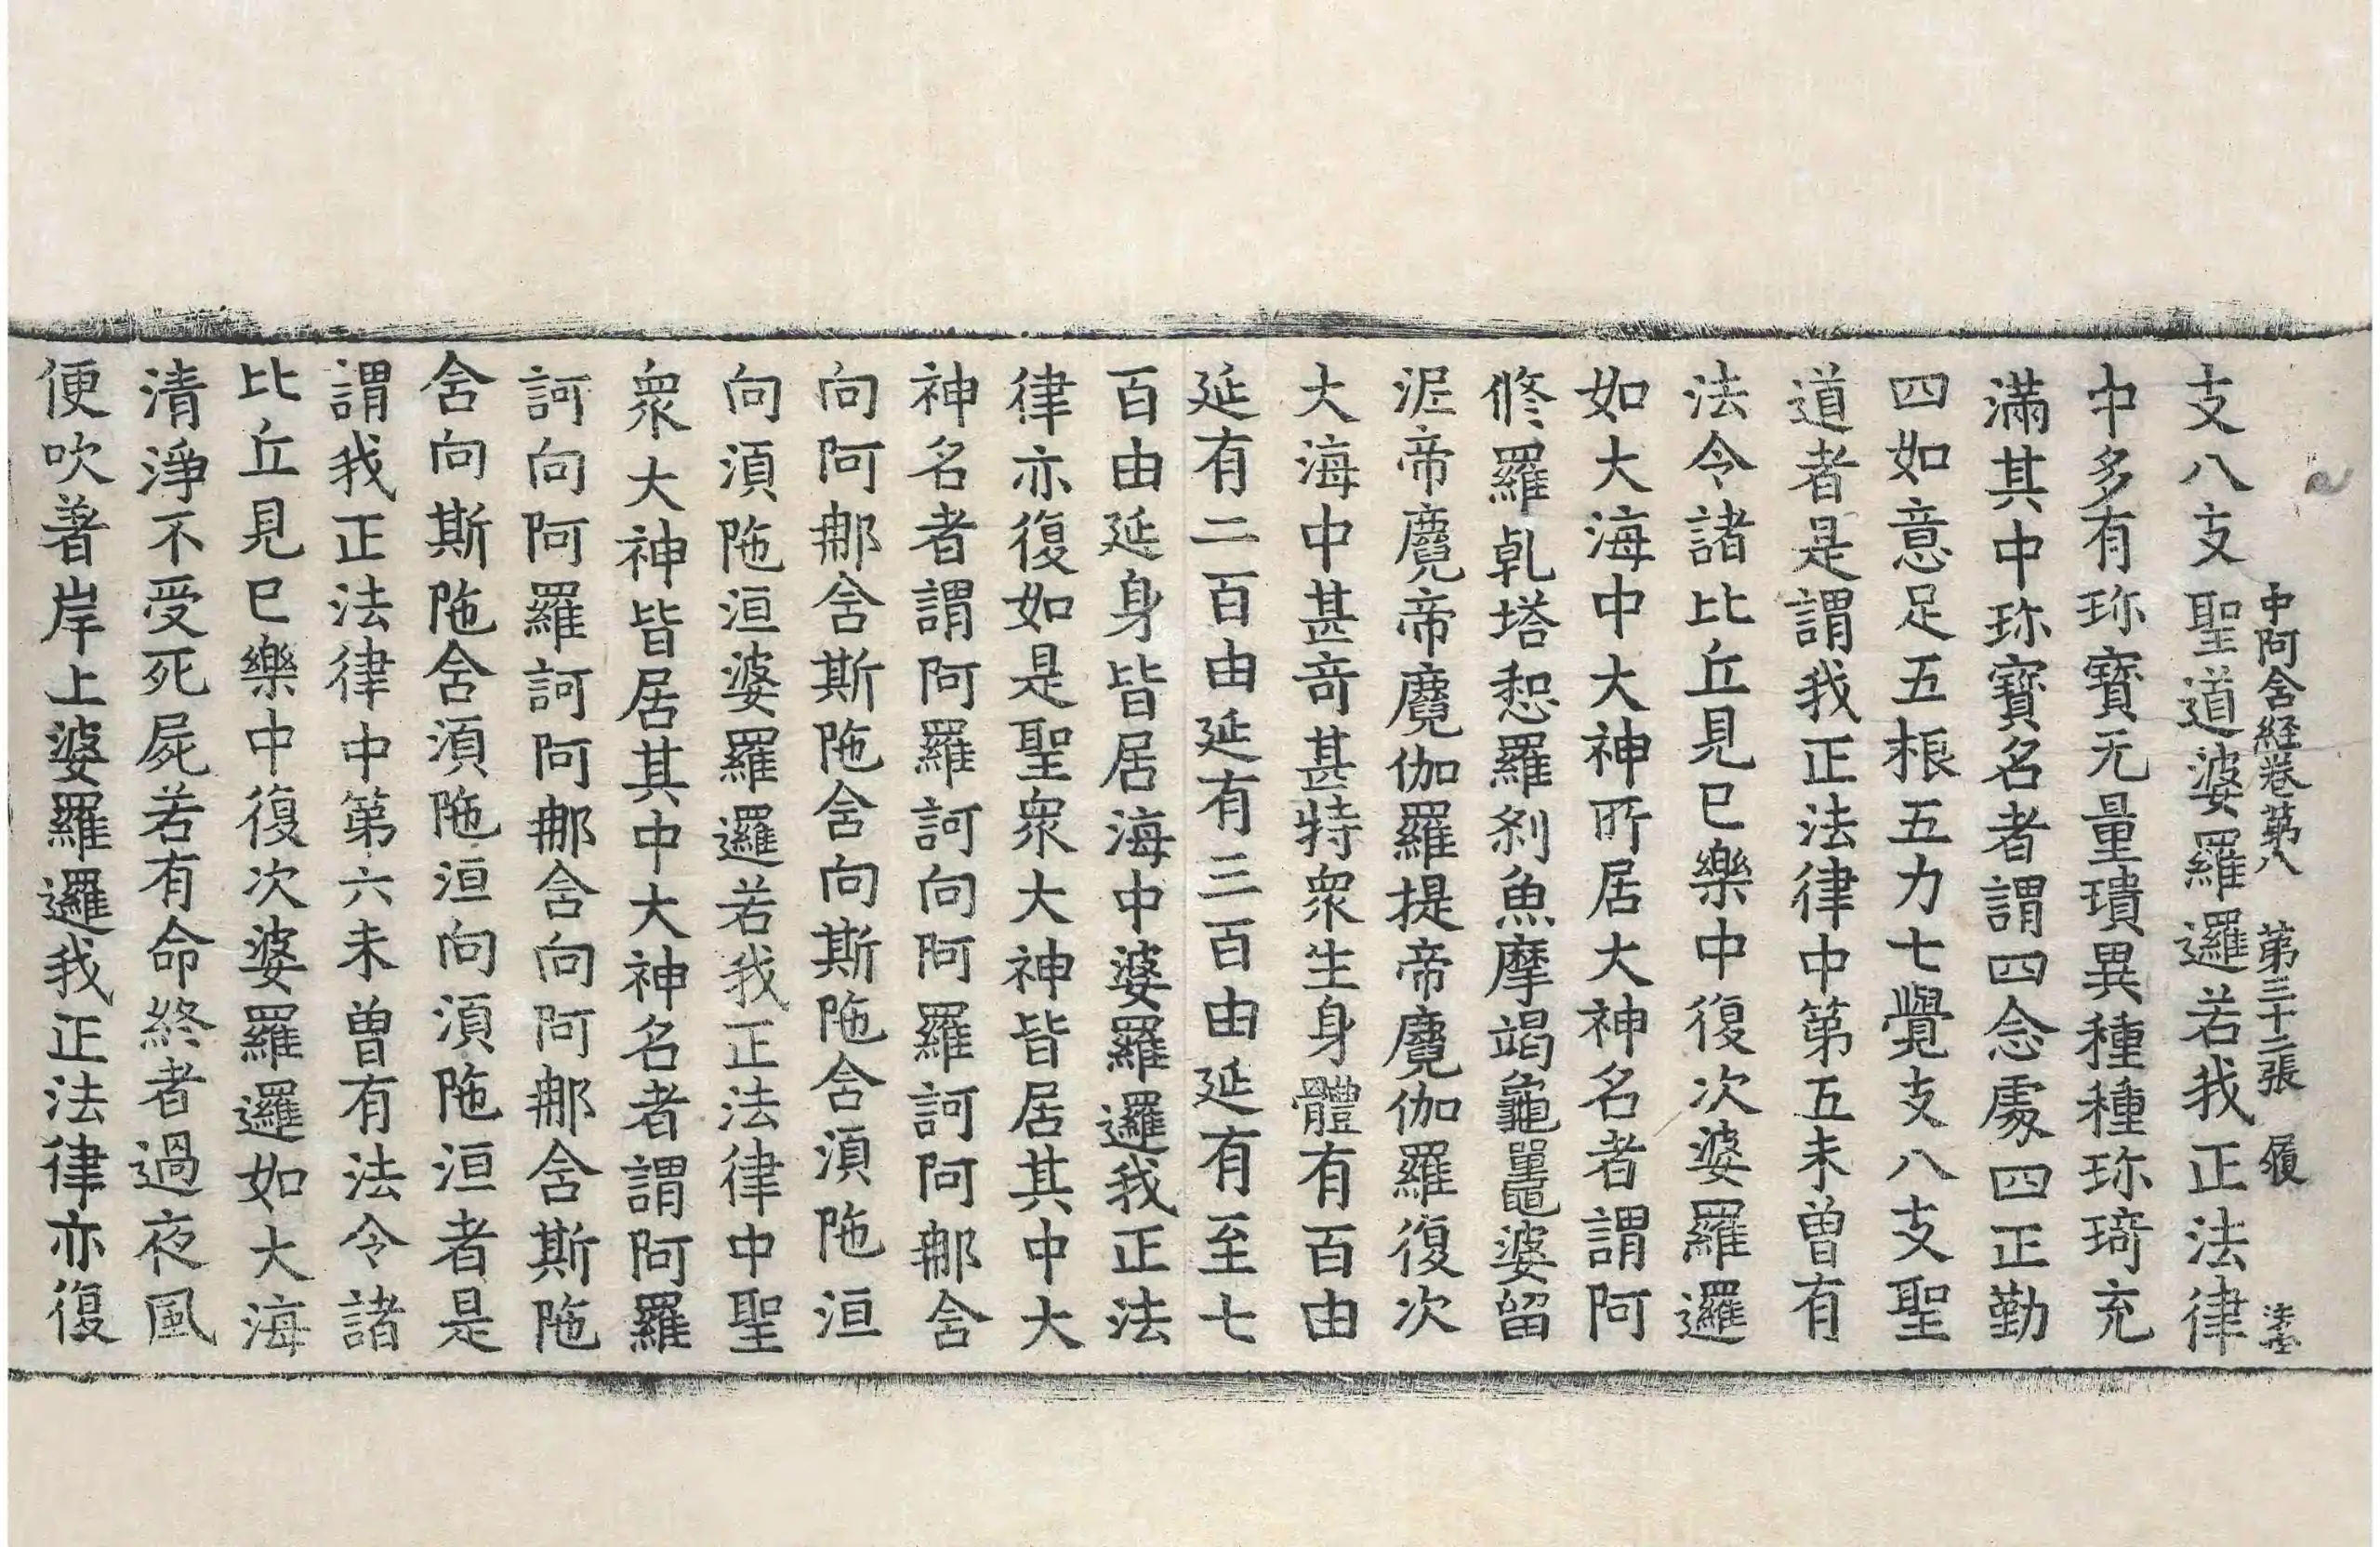 中阿含経卷第八　第三十二張　履
支八支聖道婆羅邏若我正法律
中多有珎寶无量璝異種種珎琦充
滿其中珎寶名者謂四念處四正勤
四如意足五根五力七覺支八支聖
道者是謂我正法律中第五未曾有
法令諸比丘見已樂中復次婆羅邏
如大海中大神所居大神名者謂阿
修羅乹塔惒羅刹魚摩竭龜鼉婆留
泥帝麑帝麑伽羅提帝麑伽羅復次
大海中甚竒甚特衆生身體有百由
延有二百由延有三百由延有至七
百由延身皆居海中婆羅邏我正法
律亦復如是聖衆大神皆居其中大
神名者謂阿羅訶向阿羅訶阿那含
向阿那含斯陁含向斯陁含須陁洹
向須陁洹婆羅邏若我正法律中聖
衆大神皆居其中大神名者謂阿羅
訶向阿羅訶阿那含向阿那含斯陁
含向斯陁含須陁洹向須陁洹者是
謂我正法律中第六未曾有法令諸
比丘見已樂中復次婆羅邏如大海
清淨不受死屍若有命終者過夜風
便吹著岸上婆羅邏我正法律亦復